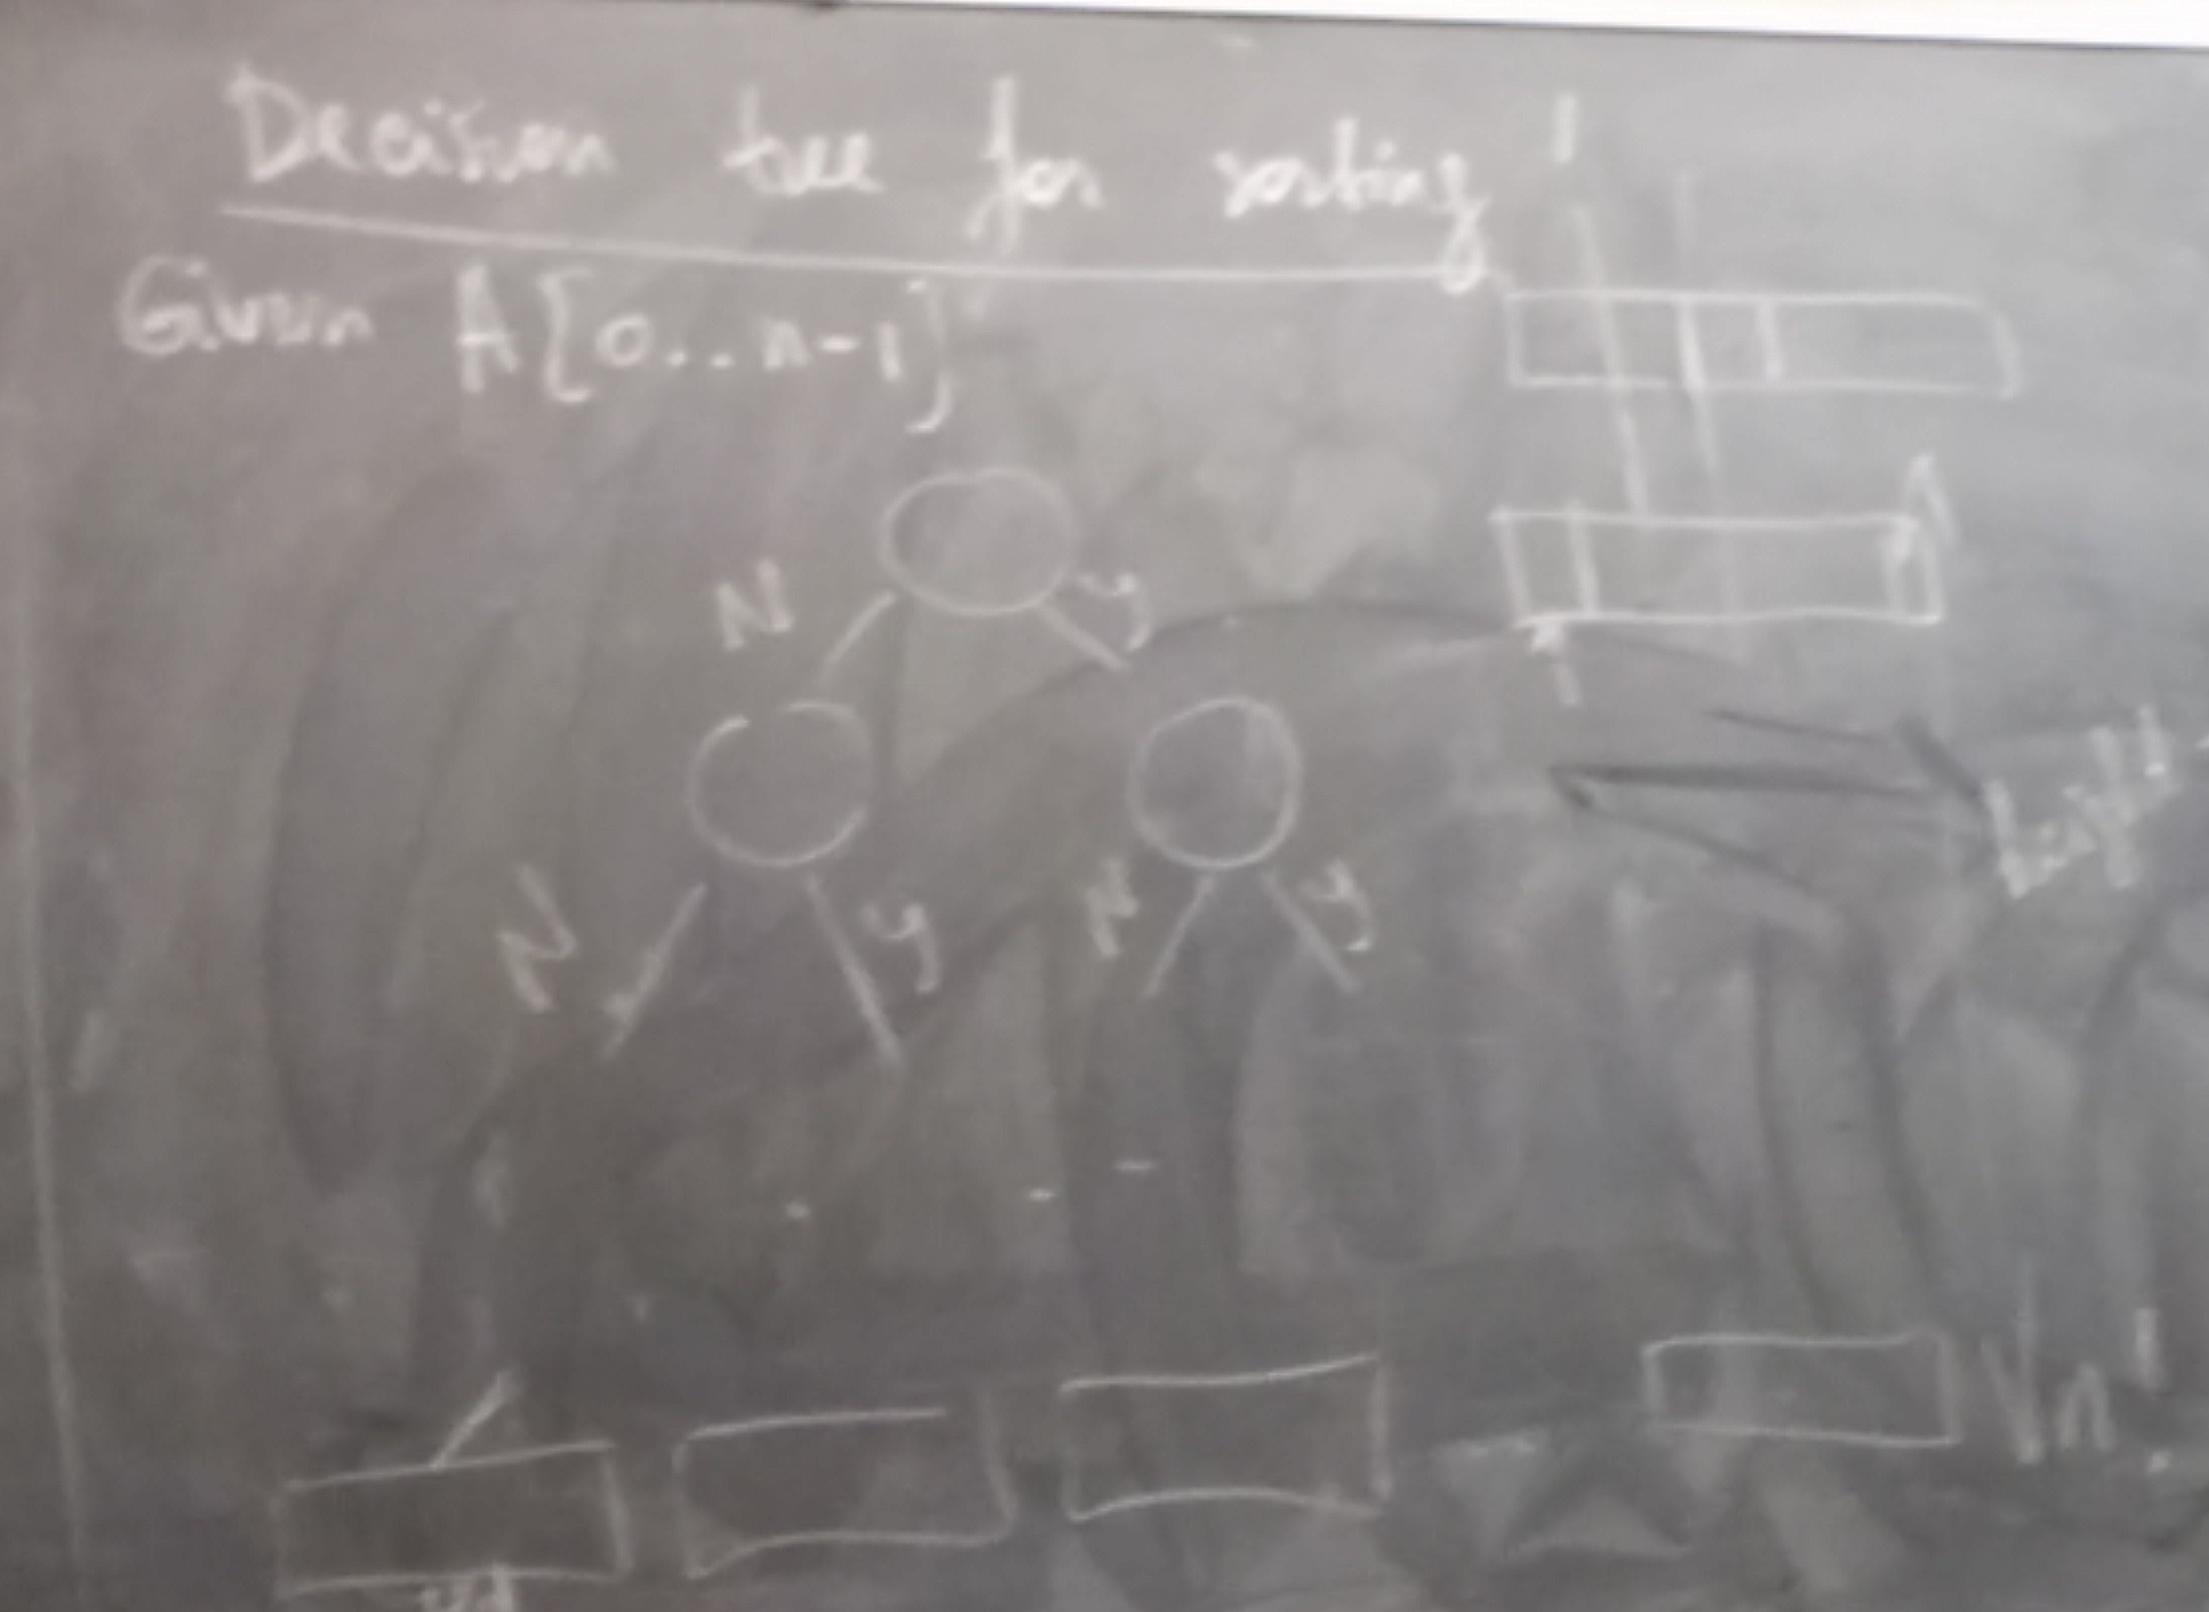 Decision tree for sorting
Given A[0..n-1]
N y
N y N y
n!